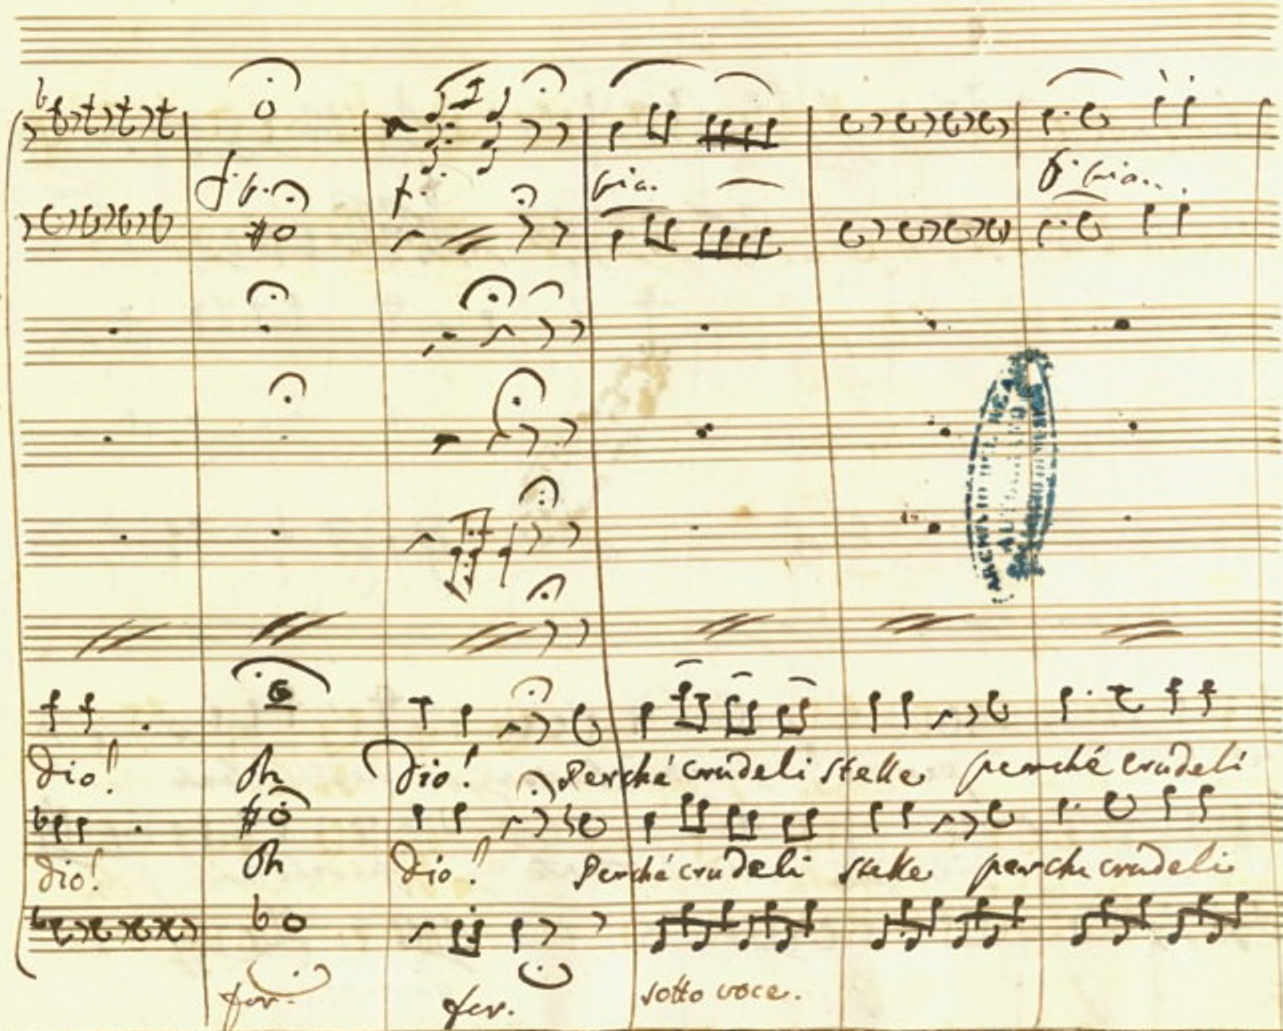 f.
p.
dio! oh Dio! Perché crudeli stelle perché crudeli
dio! oh Dio! Perché crudeli stelle perche crudeli
for. for. sotto voce.